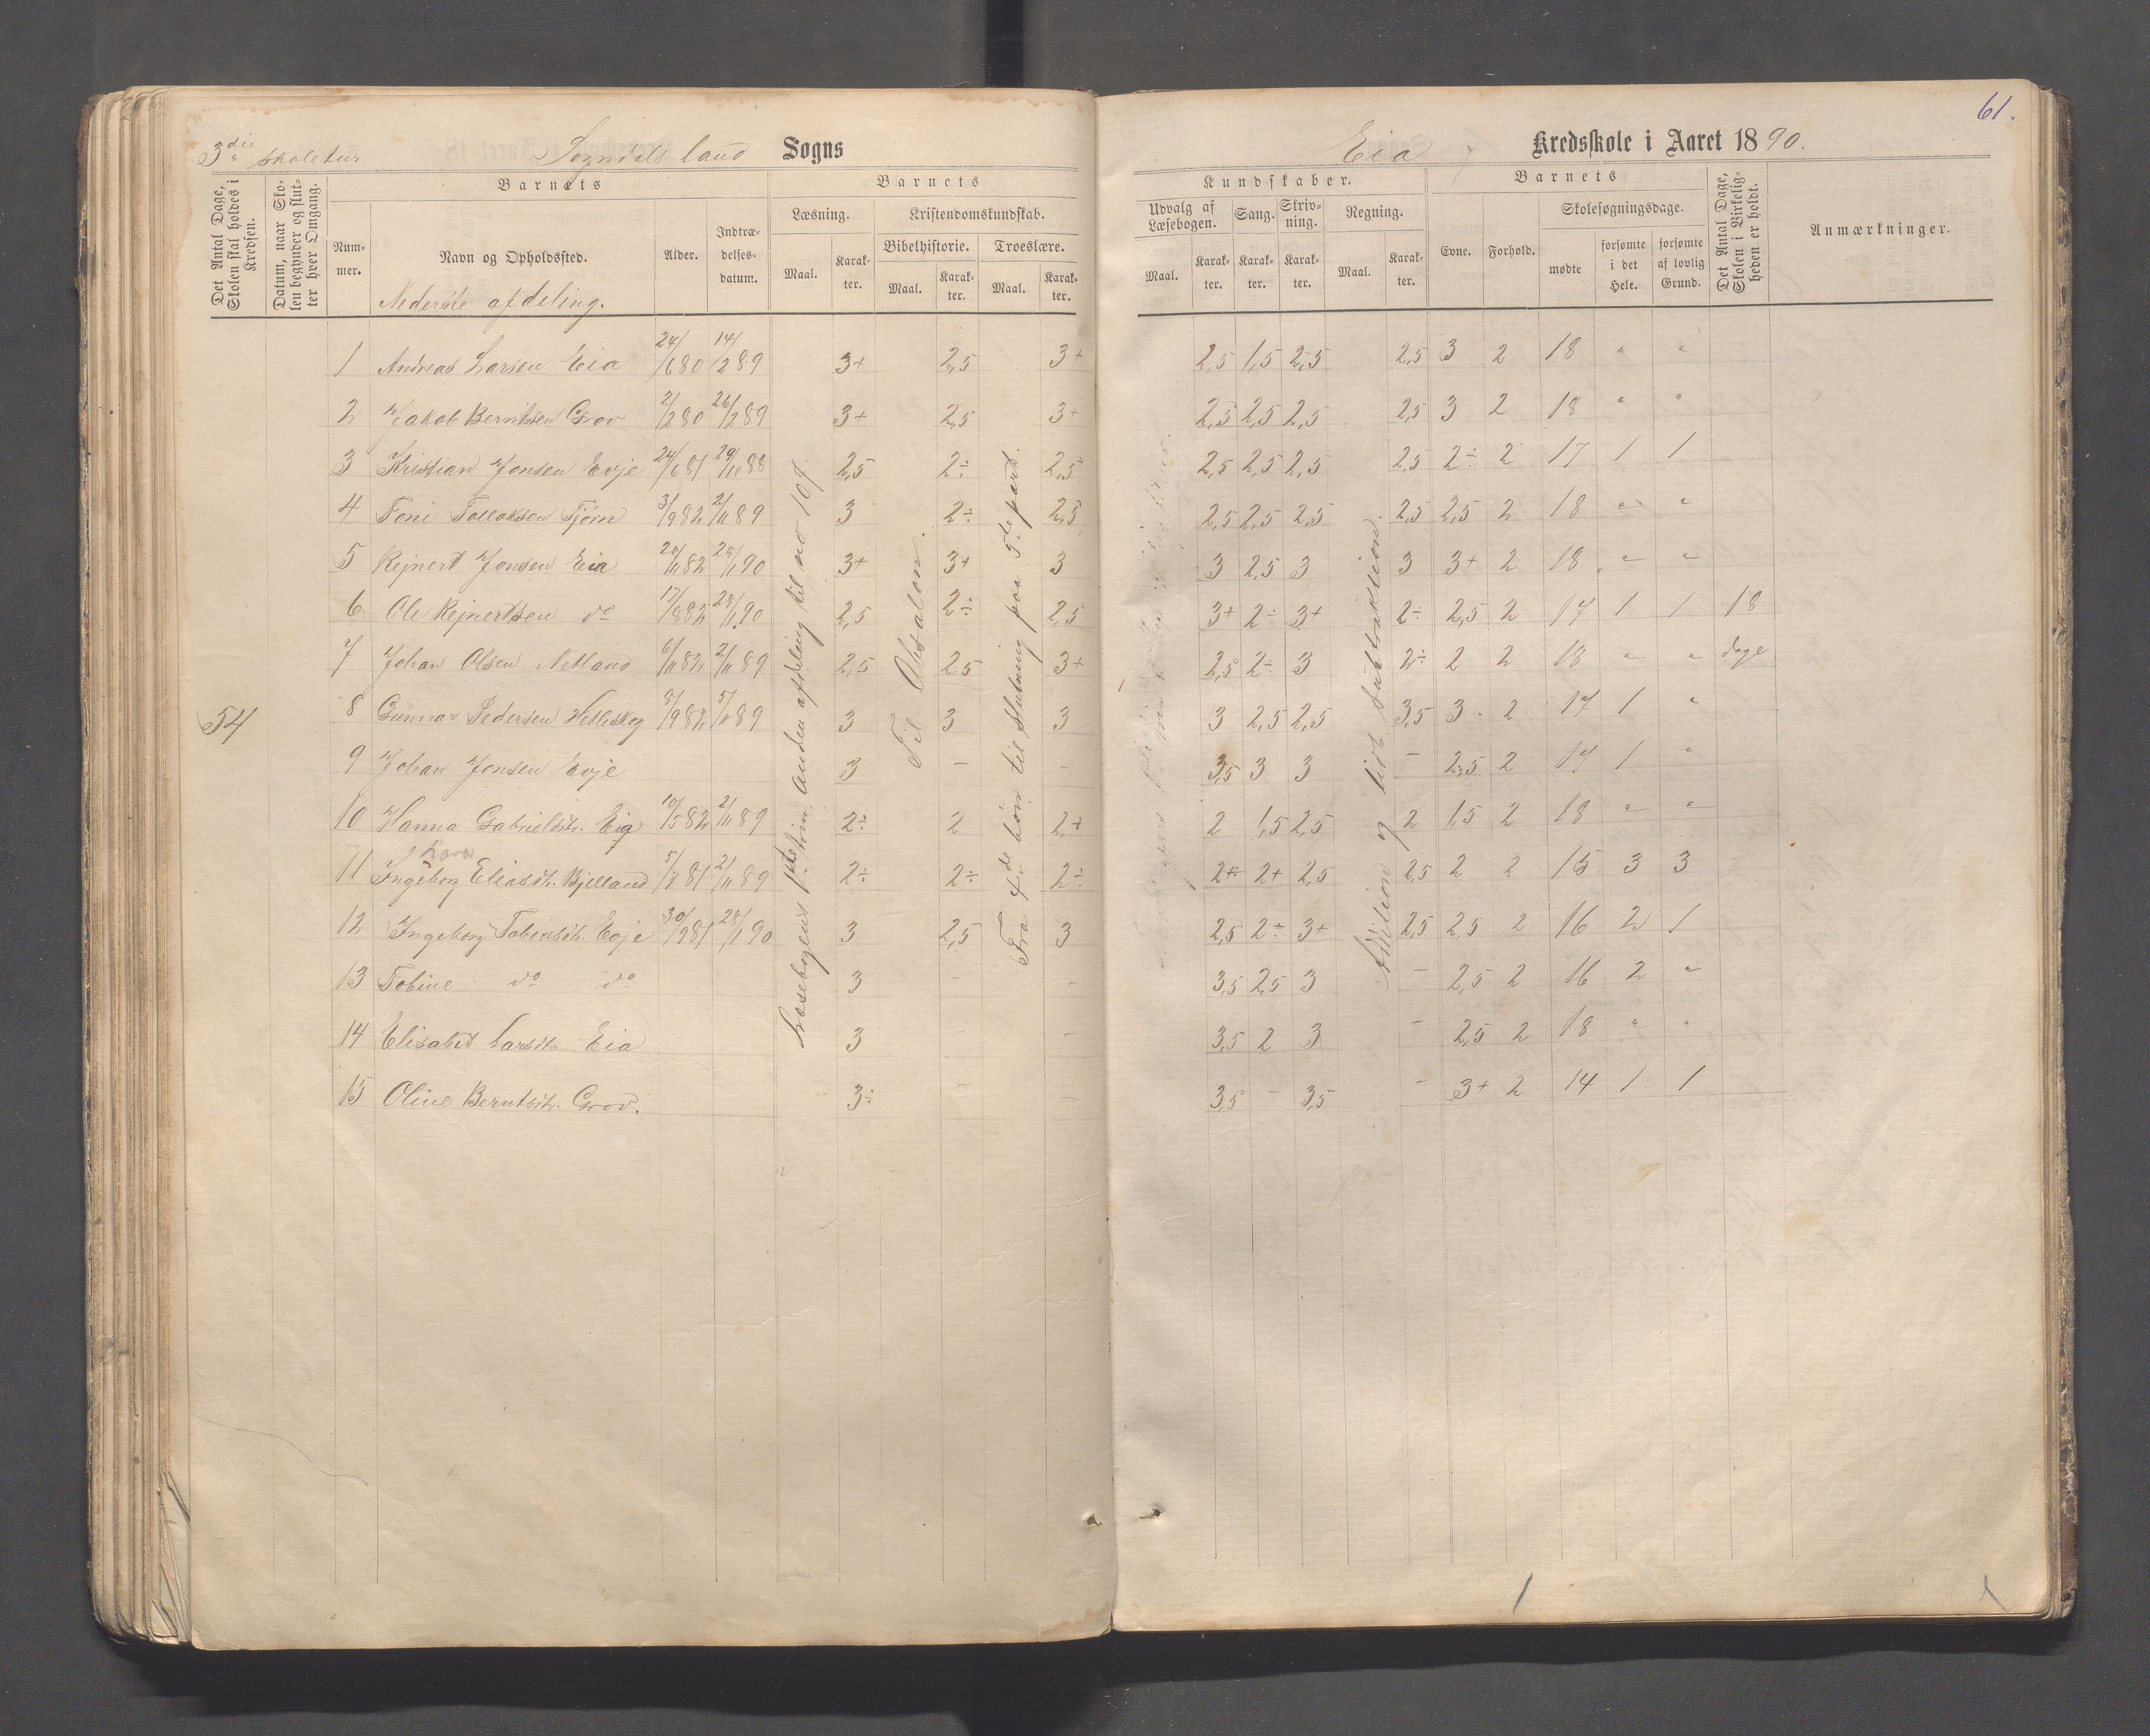 61.
3die skoletur Sogndals land Sogns
Eia Kredsskole i Aaret 1890.
Det Antal Dage, Skolen skal holdes i Kredsen.
Datum, naar Skolen begynder og slutter hver Omgang.
Barnets
Nummer.
Navn og Opholdssted.
Nederste afdeling.
Alder.
Indtrædelsesdatum.
Barnets
Læsning.
Maal.
Karakter.
Kristendomskundskab.
Bibelhistorie.
Maal.
Karakter.
Troeslære.
Maal.
Karakter.
Kundskaber.
Udvalg af Læsebogen.
Maal.
Karakter.
Sang.
Karakter.
Skrivning.
Karakter.
Regning.
Maal.
Karakter.
Barnets
Evne.
Forhold.
Skolesøgningsdage.
mødte
forsømte i det Hele.
forsømte af lovlig Grund.
Det Antal Dage, Skolen i Virkeligheden er holdt.
Anmærkninger.
1 Andreas Larsen Eia 24/6 80 14/2 89 3+ 2,5 3+ 2,5 1,5 2,5 2,5 3 2 18 " "
2 Jakob Berntsen Grov 2/2 80 26/2 89 3+ 2,5 3+ 2,5 2,5 2,5 2,5 3 2 18 " "
3 Kristian Jonsen Evje 24/6 81 29/10 88 2,5 2÷ 2,5 2,5 2,5 2,5 2,5 2÷ 2 17 1 1
4 Toni Tollaksen Tjørn 3/9 82 2/11 89 3 2÷ 2,5 2,5 2,5 2,5 2,5 2,5 2 18 " "
5 Rejnert Jonsen Eia 20/11 82 28/1 90 3+ 3+ 3 3 2,5 3 3 3+ 2 18 " "
6 Ole Rejnertsen do 17/8 82 28/1 90 2,5 2÷ 2,5 3+ 2÷ 3+ 2÷ 2,5 2 17 1 1 18
7 Johan Olsen Netland 6/11 82 2/11 89 2,5 2,5 3+ 2,5 2÷ 3 2÷ 2 2 18 " " dage
54
8 Gunnar Pedersen Hetleskog 8/9 82 5/11 89 3 3 3 3 2,5 2,5 3,5 3 2 17 1 "
9 Johan Jonsen Evje 3 – – 3,5 3 3 – 2,5 2 17 1 "
10 Hanna Gabrielsdtr. Eia 10/5 82 2/11 89 2÷ 2 2+ 2 1,5 2,5 2 1,5 2 18 " "
Lova
11 Ingeborg Eliasdtr. Bjelland 5/7 81 2/11 89 2÷ 2÷ 2÷ 2+ 2+ 2,5 2,5 2 2 15 3 3
12 Ingeborg Tobiasdtr. Evje 30/9 81 28/1 90 3 2,5 3 2,5 2÷ 3+ 2,5 2,5 2 16 2 1
13 Tobine do do 3 – – 3,5 2,5 3 – 2,5 2 16 2 "
14 Elisabet Larsdtr Eia 3 – – 3,5 2 3 – 2,5 2 18 " "
15 Oline Berntsdtr. Grov. 3÷ – – 3,5 – 3,5 – 3+ 2 14 1 1
Læsebogens 1ste trin, anden afdeling til no 109
Til Absalon.
Fra 4de bøn til slutning paa 5te part.
Addition og lidt subtraktion.